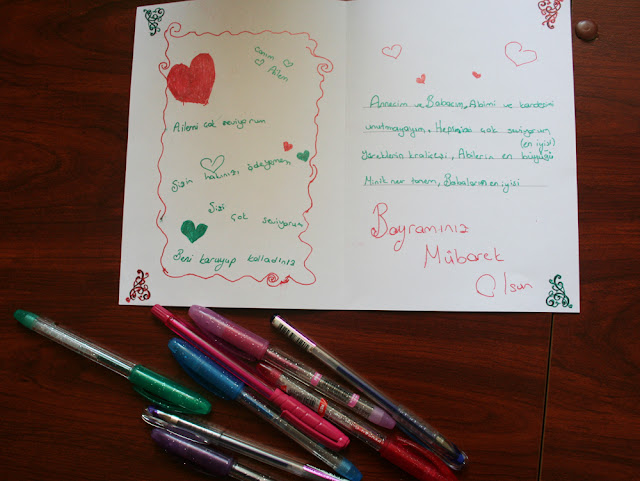 Canım
Ailem
Ailemi çok seviyorum
Sizin hakınızı ödeyemem
Sizi
çok seviyorum
Beni koruyup kolladınız
Annecim ve Babacım, Abimi ve kardeşimi
unutmayayım. Hepinizi çok seviyorum
(en iyisi)
Yüreklerin kraliçesi, Abilerin en büyüğü
Minik nur tanem, Babaların en iyisi
Bayramınız
Mübarek
Olsun